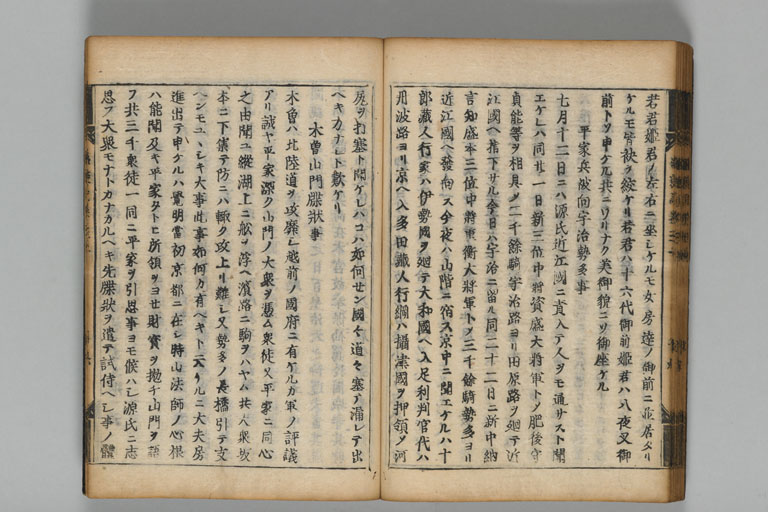 若君姫君ノ左右ニ坐シケルモ女房達ノ御前ニ並居タリ
ケルモ皆袂ヲ絞ケリ若君ハ十六代御前姫君ハ八夜叉御
前トソ申ケル共ニワリナク美御貌ニソ御座ケル
平家兵被向宇治勢多事
七月十三日ニハ源氏近江國ニ責入テ人ヲモ通サスト聞
エケレハ同廿一日新三位中將資盛大將軍トノ肥後守
貞能等ヲ相具メ二千餘騎宇治路ヨリ田原路ヲ廻テ近
江國ヘ指下サル今日ハ宇治ニ留ル同二十二日ニ新中納
言知盛本三位中將重衡大將軍トノ三千餘騎勢多ヨリ
近江國ヘ發向ス今夜ハ山階ニ宿ス京中ニ聞エケルハ十
郎藏人行家ハ伊勢國ヲ廻テ大和國ヘ入足利判官代ハ
丹波路ヨリ京ヘ入多田藏人行綱ハ攝津國ヲ押領メ河
尻ヲ打塞ト聞ケレハコハ如何セン國々道々塞テ漏レテ出
ヘキカナレト歎ケリ
木曽山門牒狀事
木曽ハ北陸道ヲ攻靡シ越前ノ國府ニ有ケルカ軍ノ評議
アリ誠ヤ平家深ク山門ノ大衆ヲ憑ム衆徒又平家ニ同心
之由聞ユ縱湖上ニ船ヲ浮ヘ濱路ニ駒ヲハヤム共八衆坂
本ニ下集テ防ニハ輙ク攻上リ難シ又勢多ノ長橋引テ支
ヘンモユヽシキ大事此事如何カ有ヘキト云ケルニ大夫房
進出テ申ケルハ覺明當初京都ニ在シ時山法師ノ心根
ハ能聞及キ平家タトヒ所領ヲヨセ財寶ヲ抛チ山門ヲ語
フ共三千衆徒一同ニ平家ヲ引思事ヨモ候ハシ源氏ニ志
思フ大衆モナトカナカルヘキ先牒狀ヲ遣テ試侍ヘシ事ノ體